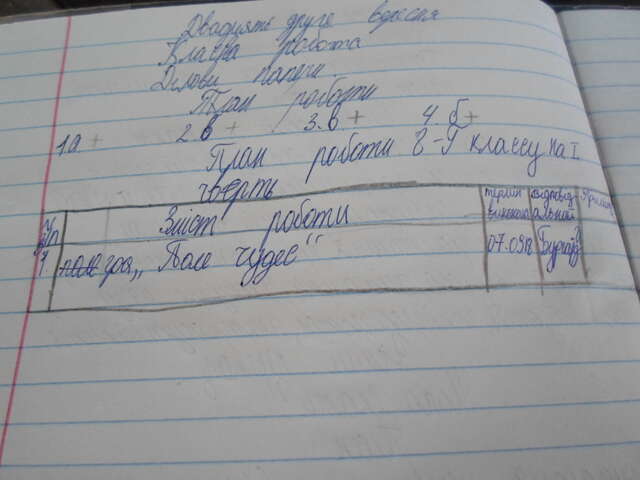 Двадцять друге вересня
Класна робота
Ділові папери.
План роботи
1.а + 2.в + 3.в + 4.б +
План роботи 8-Г классу на І
чверть
№ п/п Зміст роботи термін виконан відповід альний
1 гра „Поле чудес“ 07.09.18